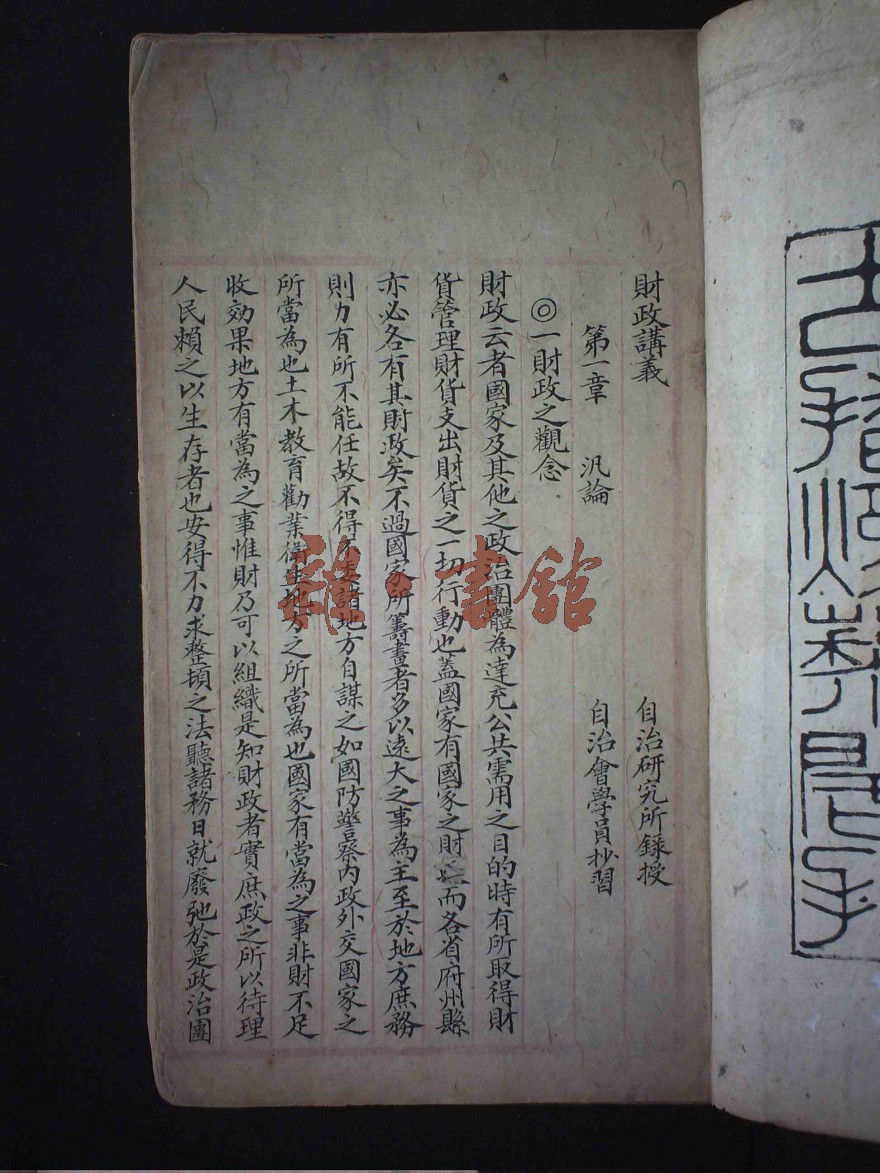 財政講義
自治研究所錄授
第一章 汎論
自治會學員抄習
◎一財政之觀念
財政云者國家及其他之政治團體為達充公共需用之目的時有所取得財
貨管理財貨支出財貨之一切行動也蓋國家有國家之財政而各省府州縣
亦必各有其財政矣不過國家所籌畫者多以遠大之事為主至於地方庶務
則力有所不能任故不得不委諸地方自謀之如國防警察內政外交國家之
所當為也土木教育勸業衛生地方之所當為也國家有當為之事非財不足
收效果地方有當為之事惟財乃可以組織是知財政者實庶政之所以待理
人民賴之以生存者也安得不力求整頓之法聽諸務日就廢弛於是政治團
雜·書館